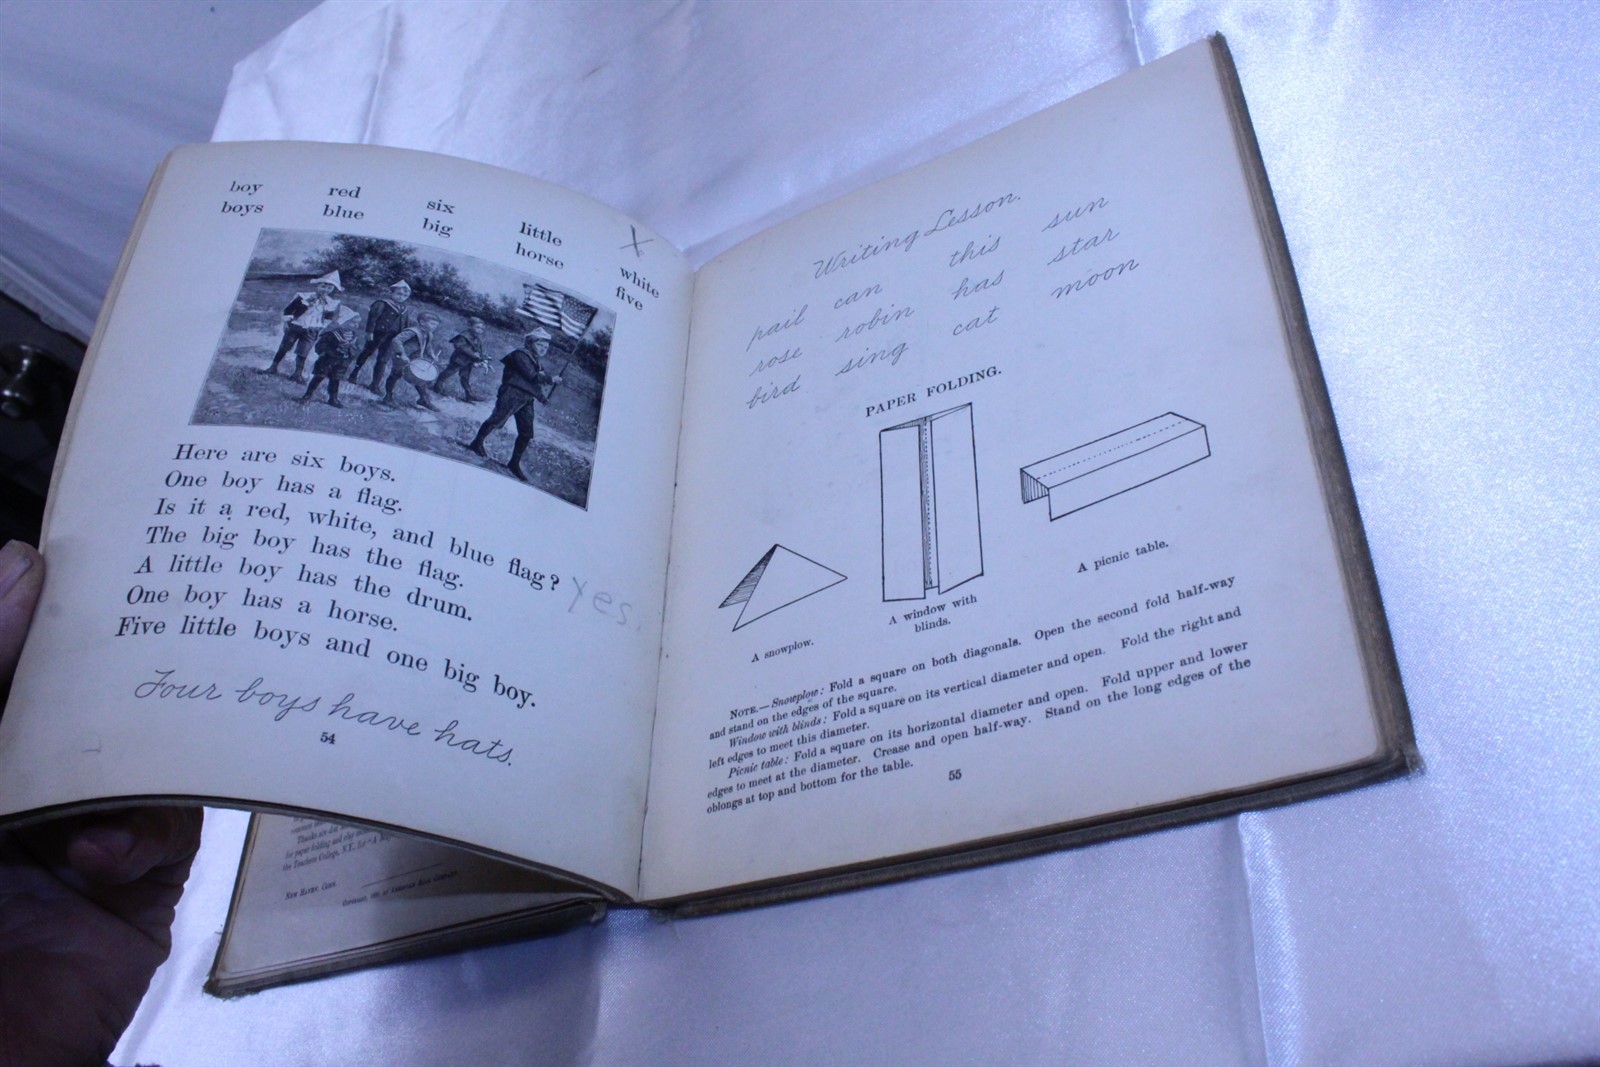 boy red six little white
boys blue big horse five
X
Here are six boys.
One boy has a flag.
Is it a red, white, and blue flag?
Yes.
The big boy has the flag.
A little boy has the drum.
One boy has a horse.
Five little boys and one big boy.
Four boys have hats.
54
Writing Lesson.
pail can this sun
rose robin has star
bird sing cat moon
PAPER FOLDING.
A snowplow.
A window with
blinds.
A picnic table.
NOTE.—Snowplow: Fold a square on both diagonals. Open the second fold half-way
and stand on the edges of the square.
Window with blinds: Fold a square on its vertical diameter and open. Fold the right and
left edges to meet this diameter.
Picnic table: Fold a square on its horizontal diameter and open. Fold upper and lower
edges to meet at the diameter. Crease and open half-way. Stand on the long edges of the
oblongs at top and bottom for the table.
55
Thanks are due
for paper-folding and clay
the Teachers College, N.Y., for "A
NEW HAVEN, CONN.
COPYRIGHT, BY AMERICAN BOOK COMPANY.